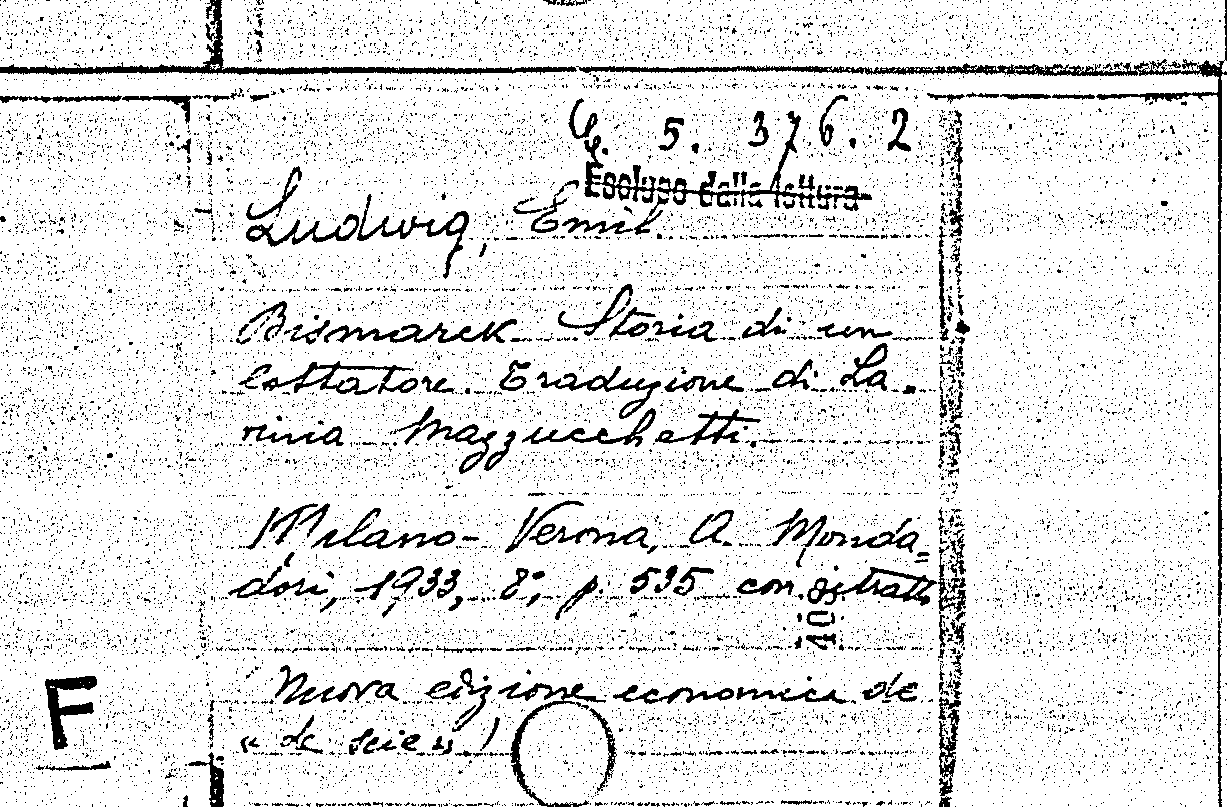 5. 376. 2
Escluso dalla lettura
Ludwig, Emil.
Bismarck. Storia di un
lottatore. Traduzione di La-
vinia Mazzucchetti.
Milano-Verona, A. Monda-
dori, 1933, 8°, p. 535 con ritratto
Nuova edizione economica de
« le scie ». )
F